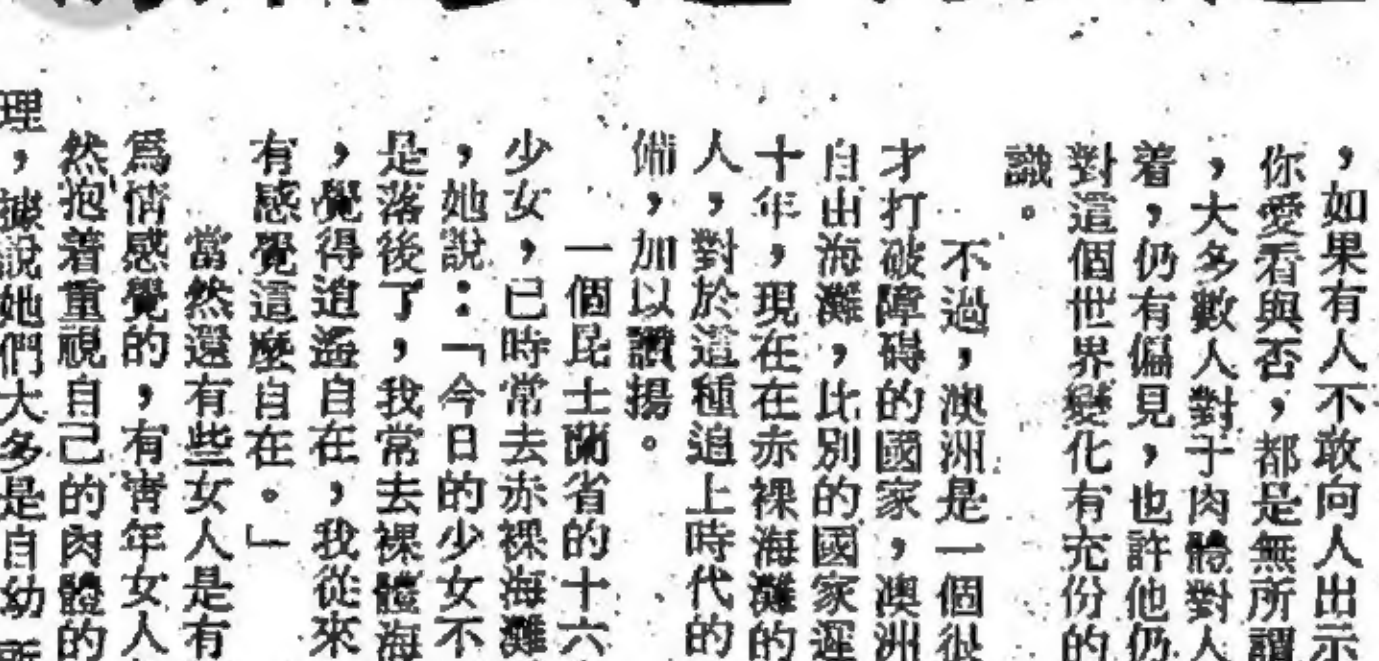 ，如果有人不敢向人出示
你愛看與否，都是無所謂
，大多數人對于肉體對人
着，仍有偏見，也許他仍
對這個世界變化有充份的
識。
不過，澳洲是一個很
才打破障碍的國家，澳洲
自由海灘，比別的國家遲
十年，現在在赤裸海灘的
人，對於這種追上時代的
備，加以讚揚。
一個昆士蘭省的十六
少女，已時常去赤裸海灘
，她說：「今日的少女不
是落後了，我常去裸體海
，覺得逍遙自在，我從來
有感覺這麼自在。」
當然還有些女人是有
爲情感覺的，有青年女人
然抱着重視自己的肉體的
理，據說她們大多是自幼